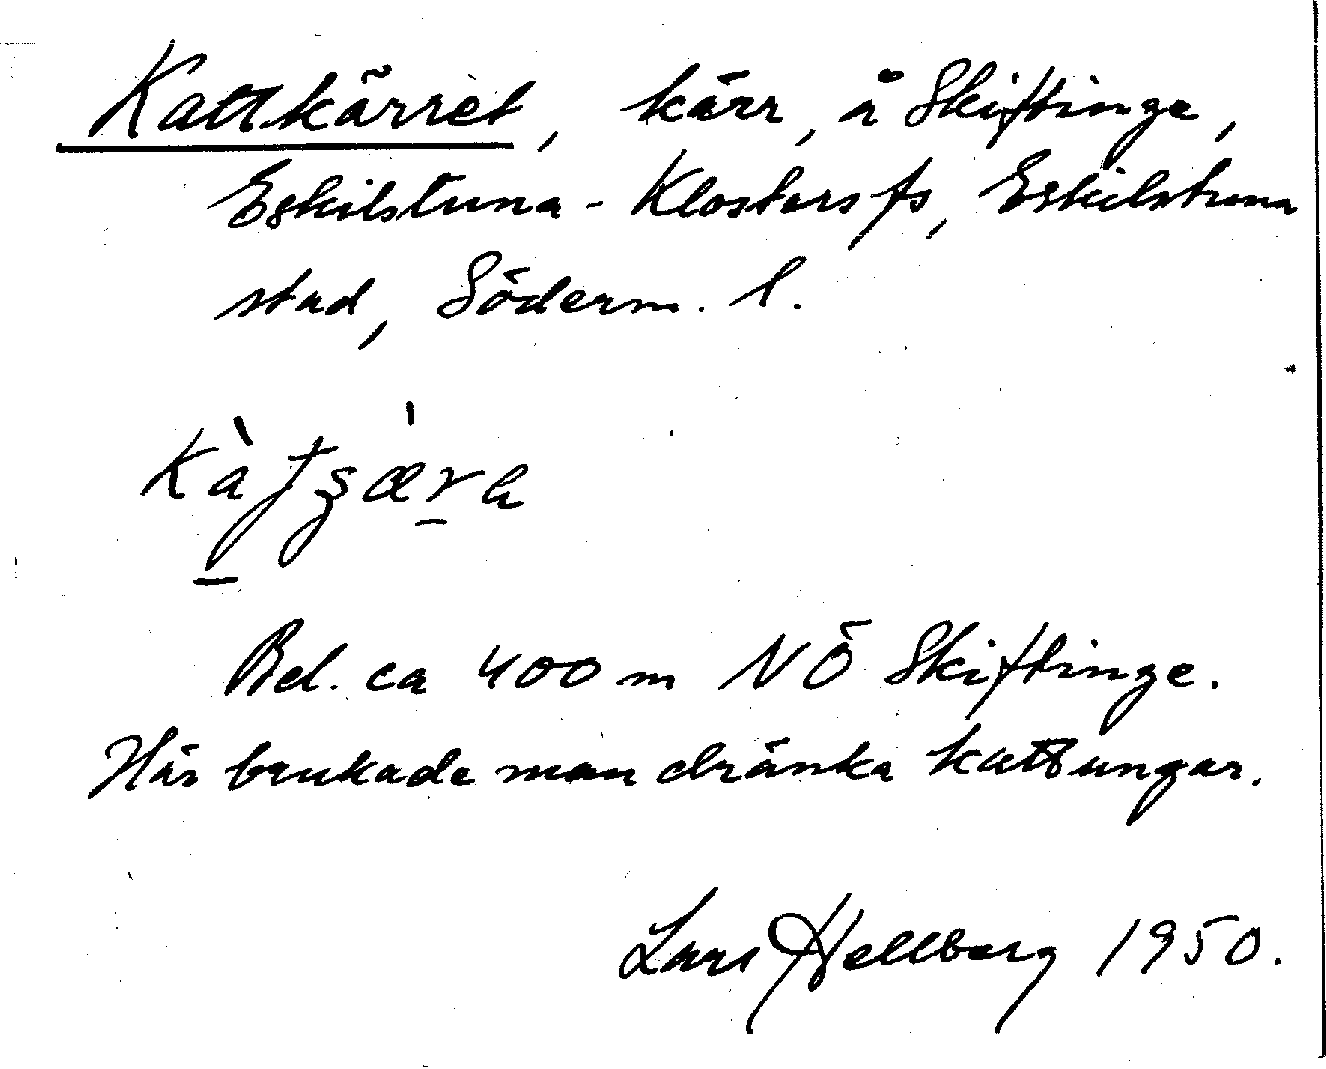 Kattkärret, kärr, å Skiftinge,
Eskilstuna-Klosters fs, Eskilstuna
stad, Söderm. l.
Bel. ca 400 m NÖ Skiftinge.
Här brukade man dränka kattungar.
Lars Hellberg 1950.